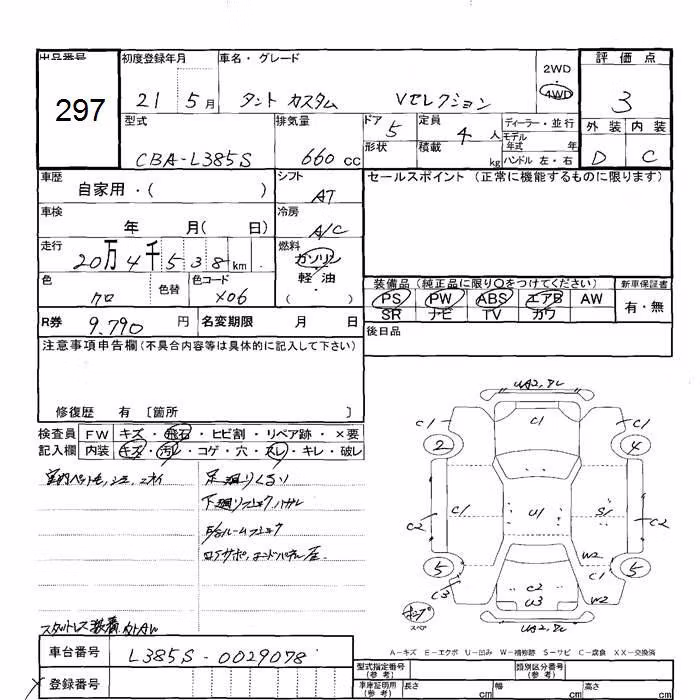 出品番号 297
初度登録年月 21 5月
車名・グレード タント カスタム Vセレクション
2WD・4WD
評価点 3
外装 D 内装 C
型式 CBA-L385S
排気量 660cc
ドア 5 形状
定員 4人 積載 kg
ディーラー・並行
モデル年式 年
ハンドル 左・右
車歴 自家用・( )
シフト AT
セールスポイント (正常に機能するものに限ります)
車検 年 月( 日)
冷房 A/C
走行 20万4千538km
燃料 ガソリン 軽油 ・( )
色 クロ 色替 色コード X06
装備品 (純正品に限り○をつけてください)
PS PW ABS エアB AW
SR ナビ TV カワ
新車保証書 有・無
R券 9,790円 名変期限 月 日
後日品
注意事項申告欄(不具合内容等は具体的に記入して下さい)
修復歴 有 [箇所 ]
検査員記入欄
FW キズ・飛石・ヒビ割・リペア跡・×要
内装 キズ・汚レ・コゲ・穴・スレ・キレ・破レ
下廻りフショク、ハガレ
スタットレス装着
車台番号 L385S-0029078
登録番号
C1 C1 C1
2 4
C2 C1 U1 S1 C2
W2
5 C1 5
C3 C2 U3 W2
スペア
A-キズ E-エクボ U-凹み W-補修跡 S-サビ C-腐食 XX-交換済
型式指定番号(参考)
類別区分番号(参考)
車庫証明用(参考) 長さ cm 幅 cm 高さ cm